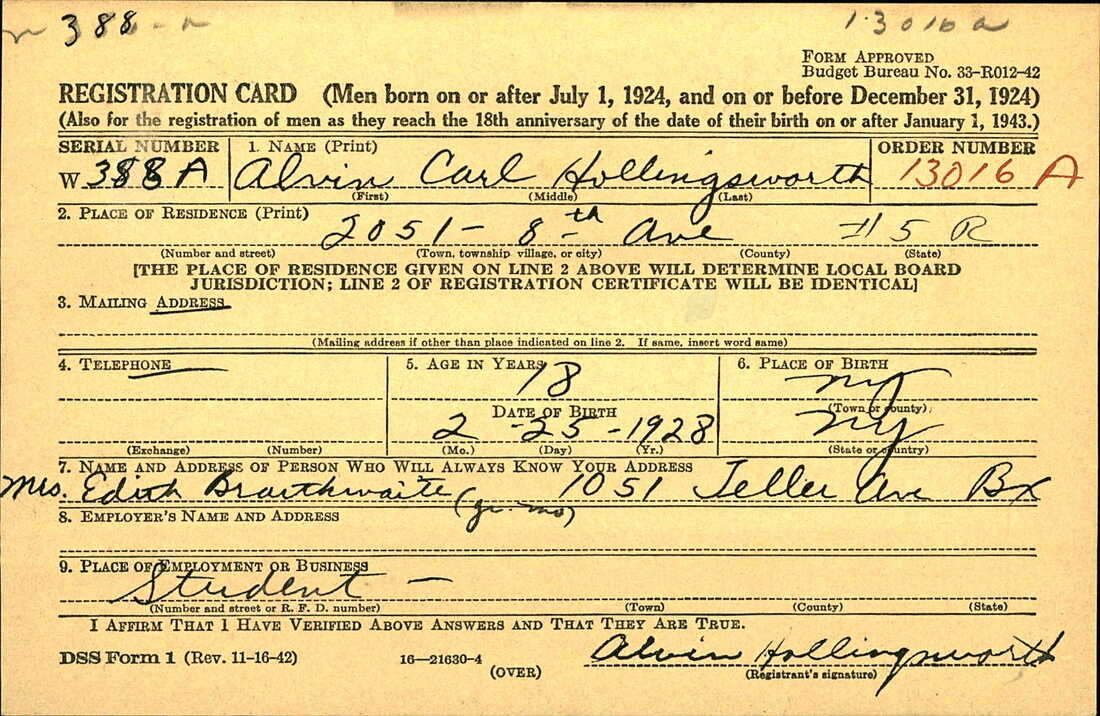 388-A
13016 A
FORM APPROVED
Budget Bureau No. 33-R012-42
REGISTRATION CARD (Men born on or after July 1, 1924, and on or before December 31, 1924)
(Also for the registration of men as they reach the 18th anniversary of the date of their birth on or after January 1, 1943.)
SERIAL NUMBER 1. NAME (Print) ORDER NUMBER
W 388 A Alvin Carl Hollingsworth 13016 A
(First) (Middle) (Last)
2. PLACE OF RESIDENCE (Print)
2051 - 8th Ave #5 R
(Number and street) (Town, township village, or city) (County) (State)
[THE PLACE OF RESIDENCE GIVEN ON LINE 2 ABOVE WILL DETERMINE LOCAL BOARD
JURISDICTION; LINE 2 OF REGISTRATION CERTIFICATE WILL BE IDENTICAL]
3. MAILING ADDRESS
(Mailing address if other than place indicated on line 2. If same, insert word same)
4. TELEPHONE 5. AGE IN YEARS 6. PLACE OF BIRTH
18 NY
DATE OF BIRTH (Town or county)
2 - 25 - 1928 NY
(Exchange) (Number) (Mo.) (Day) (Yr.) (State or country)
7. NAME AND ADDRESS OF PERSON WHO WILL ALWAYS KNOW YOUR ADDRESS
Mrs. Edith Braithwaite (gr. mo) 1051 Teller Ave Bx
8. EMPLOYER'S NAME AND ADDRESS
9. PLACE OF EMPLOYMENT OR BUSINESS
Student -
(Number and street or R. F. D. number) (Town) (County) (State)
I AFFIRM THAT I HAVE VERIFIED ABOVE ANSWERS AND THAT THEY ARE TRUE.
DSS Form 1 (Rev. 11-16-42) 16-21630-4 Alvin Hollingsworth
(OVER) (Registrant's signature)